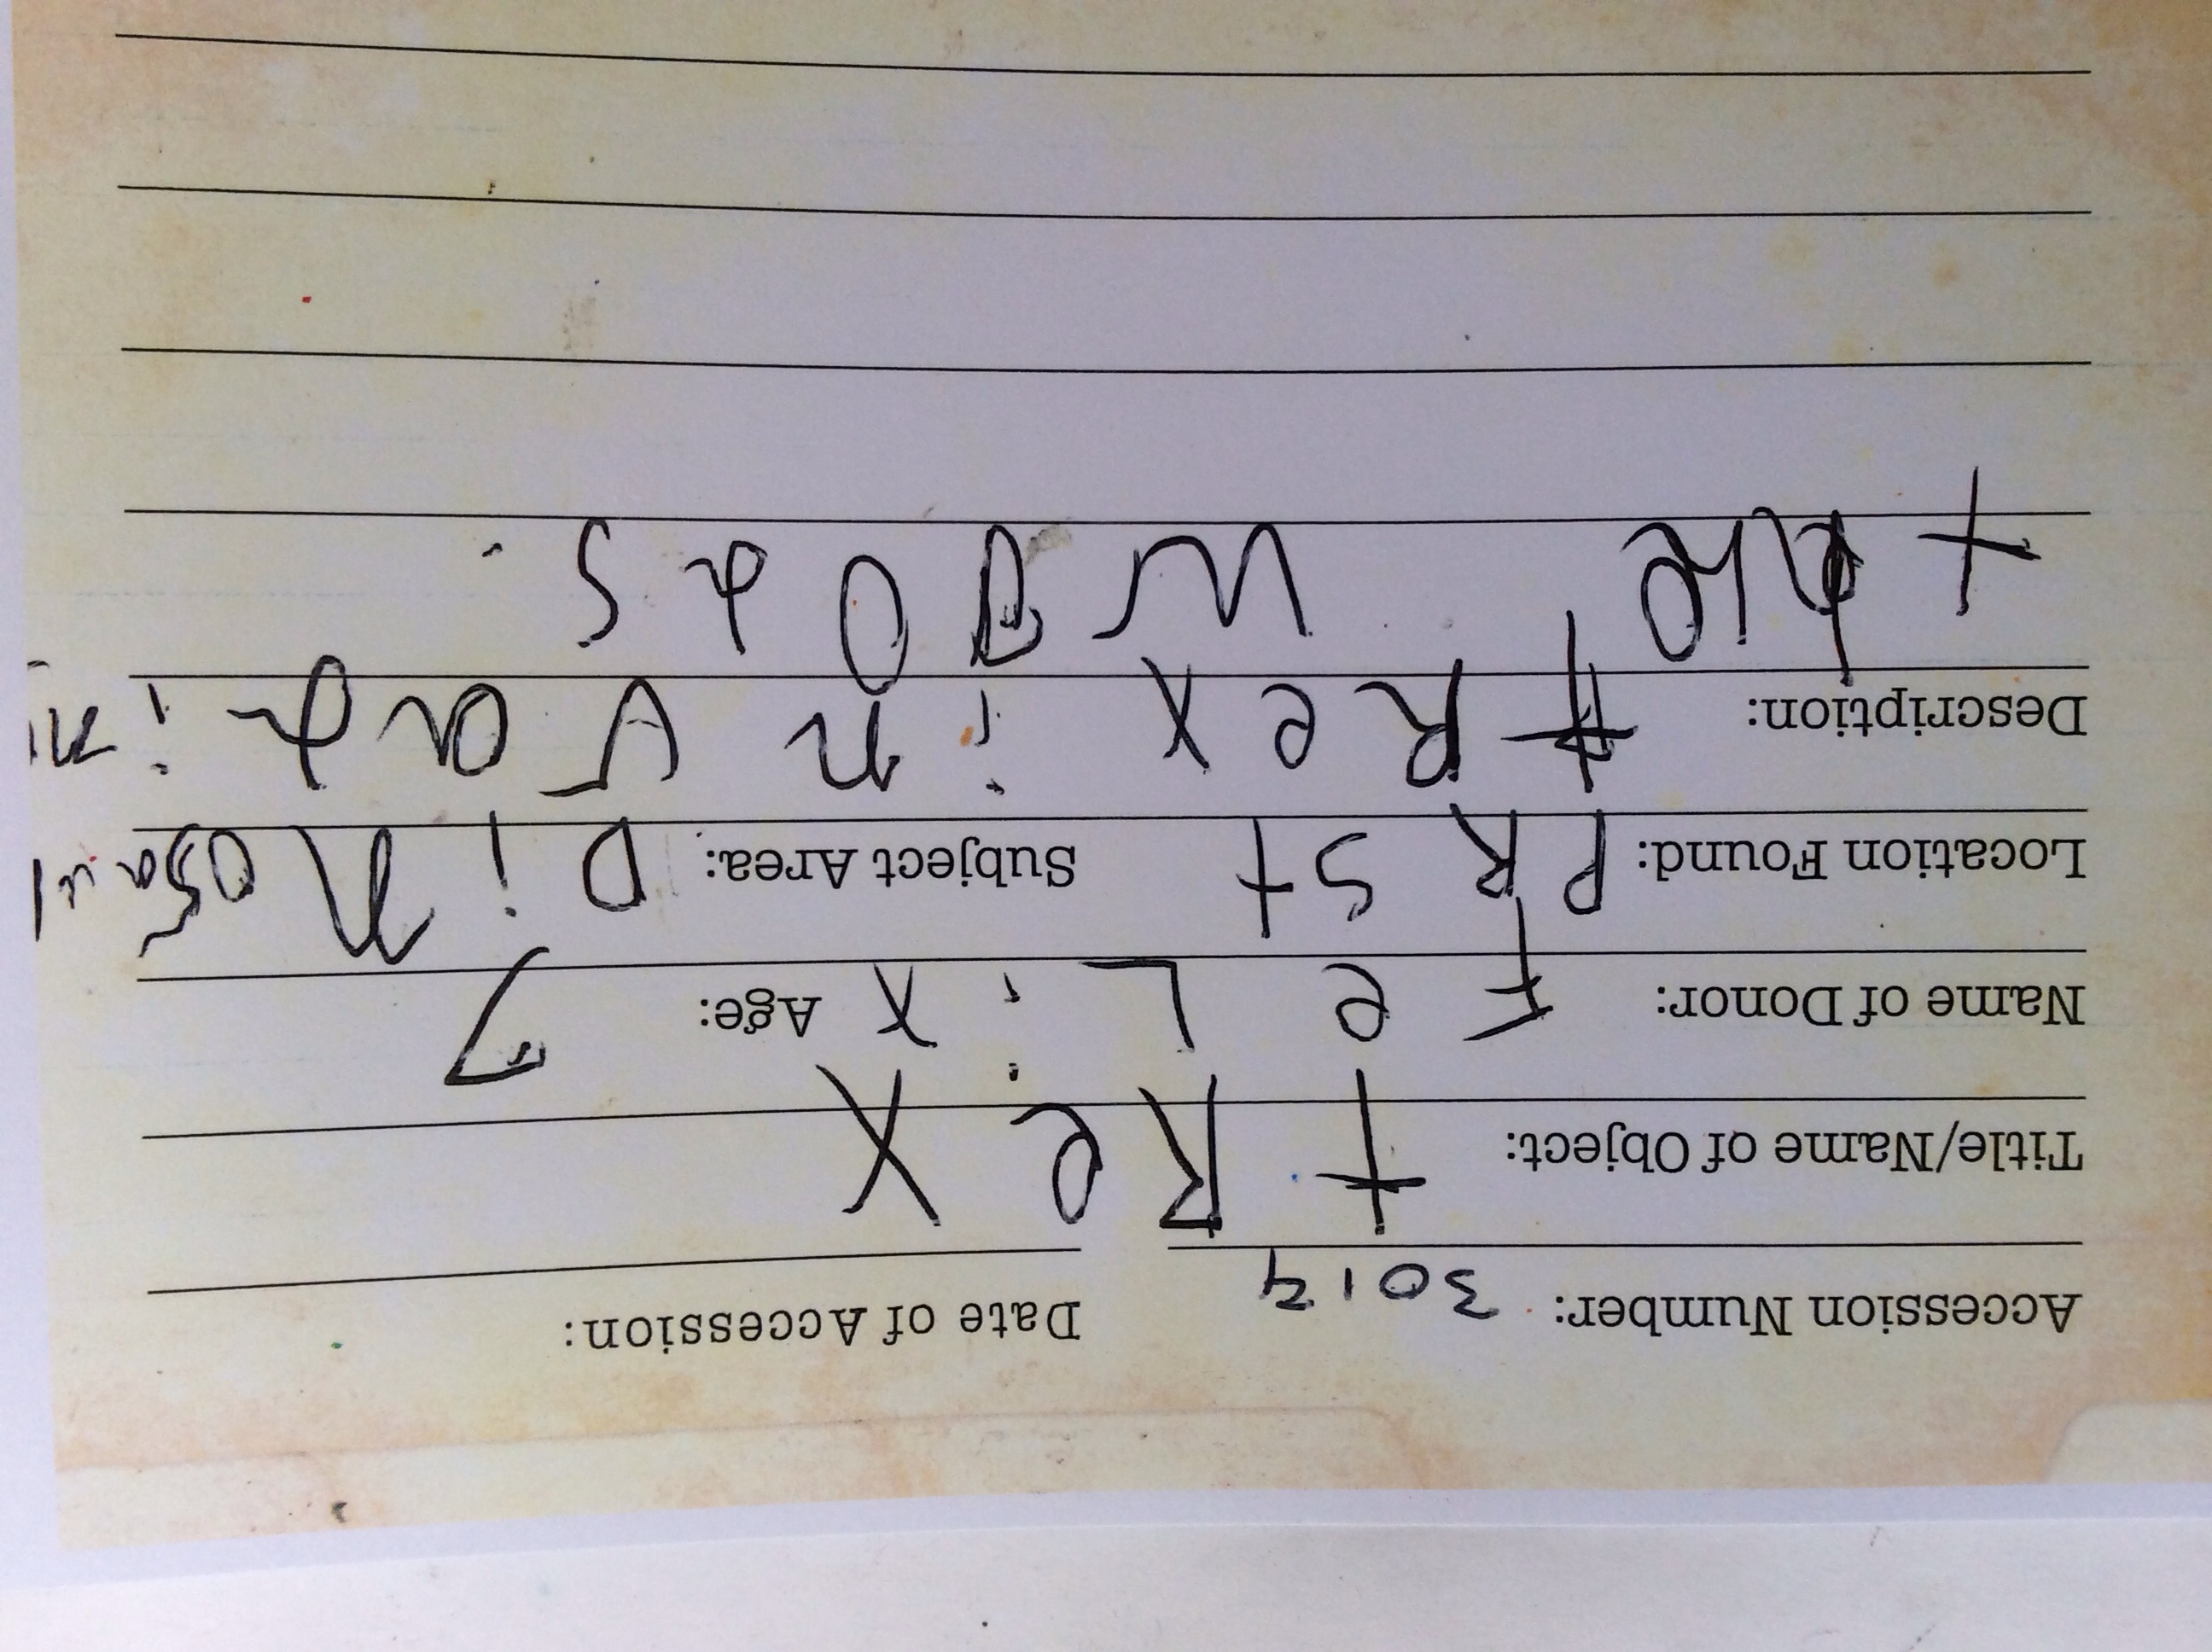 Accession Number: 3014 Date of Accession:
Title/Name of Object: t Rex
Name of Donor: FeLix Age: 7
Location Found: PRSt Subject Area: DiNosaur
Description: tRex in
t the woods.